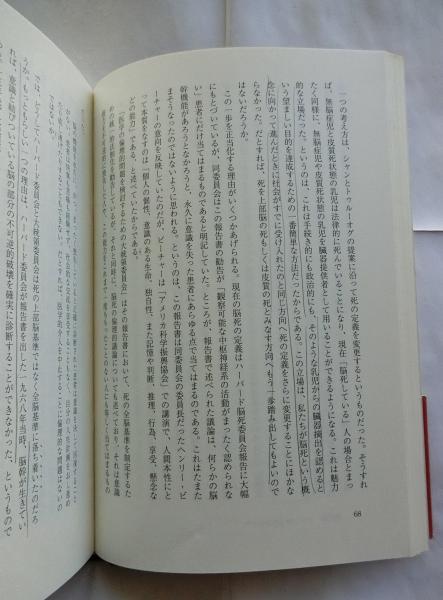 一つの考え方は、シャンとトゥルーオグの提案に沿って死の定義を変更するというものだった。そうすれ
ば、無脳症児と皮質死状態の乳児は法律的に死んでいることになり、現在「脳死している」人の場合とまっ
たく同様に、無脳症児や皮質死状態の乳児を臓器提供者として用いることができるようになる。これは魅力
的な立場だった。というのは、これは手続き的にも政治的にも、そのような乳児からの臓器摘出を認めると
いう望ましい目的を達成するための一番簡単な方法だったからである。この立場は、私たちが脳死という概
念に向かって進んだときに社会がすでに受け入れたのと同じ方向へ死の定義をさらに変更することにほかな
らなかった。だとすれば、死を上部脳の死もしくは皮質の死とみなす方向へもう一歩踏み出してもよいので
はないだろうか。
この一歩を正当化する理由がいくつかあげられる。現在の脳死の定義はハーバード脳死委員会報告に大幅
にもとづいているが、同委員会はこの報告書の勧告が「観察可能な中枢神経系の活動がまったく認められな
い」患者にだけ当てはまるものであると明記していた。ところが、報告書で述べられた議論は、何らかの脳
幹機能があろうとなかろうと、永久に意識を失った患者にあらゆる点で当てはまるのである。これはたまた
まそうなったのではないように思われる。というのは、この報告書は同委員会の委員長だったヘンリー・ビ
ーチャーの意向を反映していたのだが、ビーチャーは「アメリカ科学振興協会」での講演で、人間本性にと
って本質をなすのは「個人の個性、意識のある生命、独自性、また記憶や判断、推理、行為、享受、懸念な
どの能力」である、と述べていたからである。
「医学の倫理的問題を検討するための大統領委員会」はその報告書において、死の全脳基準を制定するた
では、どうしてハーバード委員会と大統領委員会は死の上部脳基準ではなく全脳基準に落ち着いたのだろ
うか。もっともらしい一つの理由は、ハーバード委員会が報告書を出した一九六八年当時、脳幹が生きてい
れば、意識と結びついている脳の部分の不可逆的破壊を確実に診断することができなかった、というもので
68